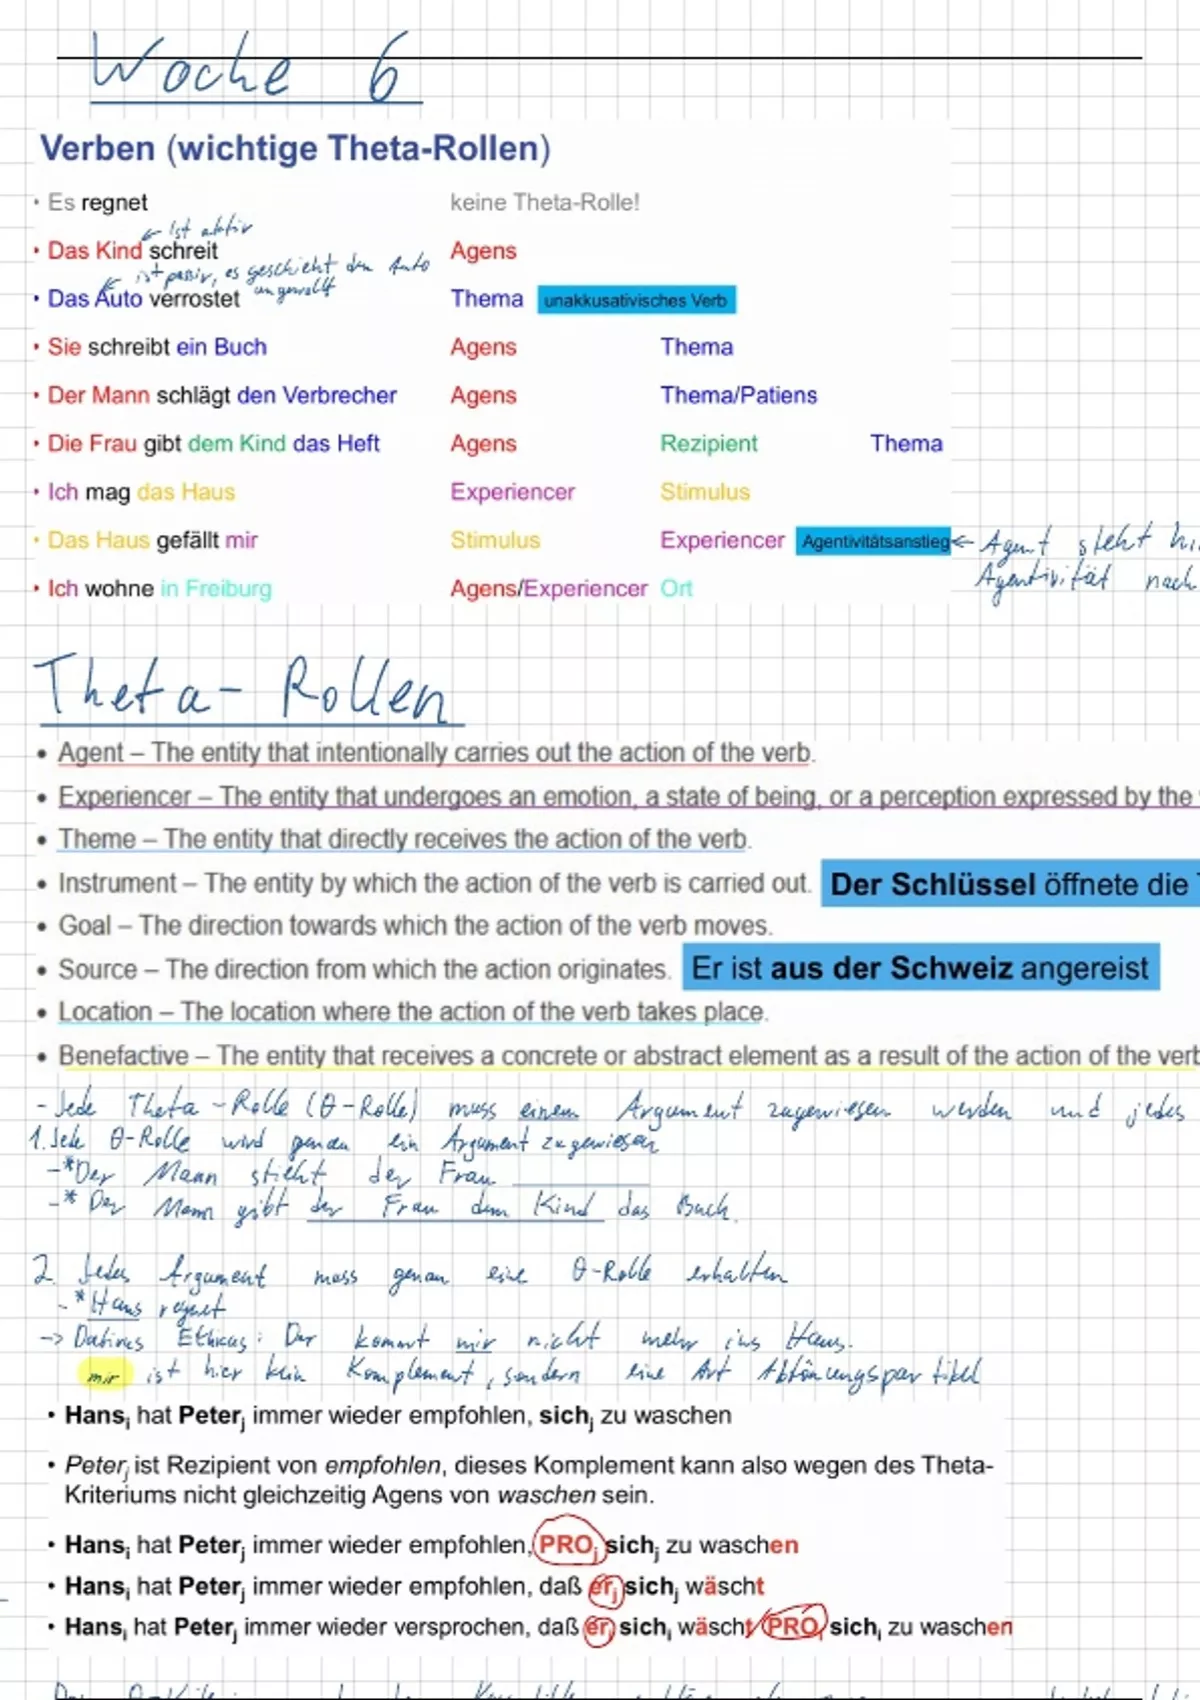 Woche 6
Verben (wichtige Theta-Rollen)
• Es regnet keine Theta-Rolle!
← ist aktiv
• Das Kind schreit Agens
← ist passiv, es geschieht dem Auto
ungewollt
• Das Auto verrostet Thema unakkusativisches Verb
• Sie schreibt ein Buch Agens Thema
• Der Mann schlägt den Verbrecher Agens Thema/Patiens
• Die Frau gibt dem Kind das Heft Agens Rezipient Thema
• Ich mag das Haus Experiencer Stimulus
• Das Haus gefällt mir Stimulus Experiencer Agentivitätsanstieg ← Agent steht
Agentivität nach
• Ich wohne in Freiburg Agens/Experiencer Ort
Theta-Rollen
• Agent – The entity that intentionally carries out the action of the verb.
• Experiencer – The entity that undergoes an emotion, a state of being, or a perception expressed by the
• Theme – The entity that directly receives the action of the verb.
• Instrument – The entity by which the action of the verb is carried out. Der Schlüssel öffnete die
• Goal – The direction towards which the action of the verb moves.
• Source – The direction from which the action originates. Er ist aus der Schweiz angereist
• Location – The location where the action of the verb takes place.
• Benefactive – The entity that receives a concrete or abstract element as a result of the action of the verb
- Jede Theta-Rolle (θ-Rolle) muss einem Argument zugewiesen werden und jedes
1. Jede θ-Rolle wird genau ein Argument zugewiesen
- *Der Mann stiehlt der Frau
- * Der Mann gibt der Frau dem Kind das Buch.
2. Jedes Argument muss genau eine θ-Rolle erhalten
- *Hans regnet
-> Dativus Ethicus: Der kommt mir nicht mehr ins Haus.
mir ist hier kein Komplement, sondern eine Art Abtönungspartikel
• Hansi hat Peterj immer wieder empfohlen, sichj zu waschen
• Peterj ist Rezipient von empfohlen, dieses Komplement kann also wegen des Theta-
Kriteriums nicht gleichzeitig Agens von waschen sein.
• Hansi hat Peterj immer wieder empfohlen, PROj sichj zu waschen
• Hansi hat Peterj immer wieder empfohlen, daß erj sichj wäscht
• Hansi hat Peterj immer wieder versprochen, daß eri sichi wäscht/ PROi sichi zu waschen